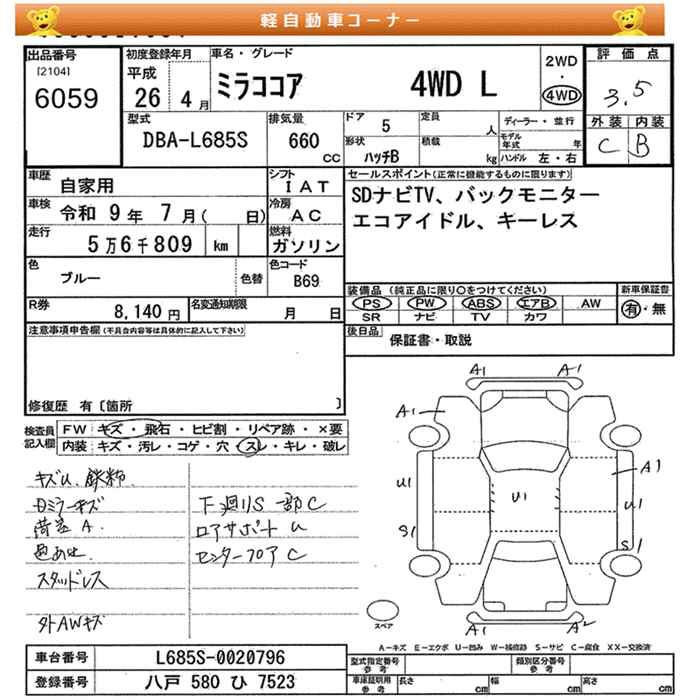 軽自動車コーナー
出品番号
[2104]
6059
初度登録年月
平成
26 4月
車名・グレード
ミラココア 4WD L
2WD
・
4WD
評価点
3.5
外装 内装
C B
型式
DBA-L685S
排気量
660
CC
ドア 5
形状 ハッチB
定員 人
積載 kg
ディーラー・並行
モデル年式 年
ハンドル 左・右
車歴 自家用
シフト IAT
車検 令和 9年 7月( 日)
冷房 AC
走行 5万6千809 km
燃料 ガソリン
色 ブルー 色替
色コード B69
R券 8,140円
名変通知期限 月 日
セールスポイント(正常に機能するものに限ります)
SDナビTV、バックモニター
エコアイドル、キーレス
装備品(純正品に限り○をつけてください) 新車保証書
PS PW ABS エアB AW 有・無
SR ナビ TV カワ
後日品 保証書・取説
注意事項申告欄(不具合内容等は具体的に記入して下さい)
修復歴 有〔箇所 〕
検査員記入欄
FW キズ・飛石・ヒビ割・リペア跡・×要
内装 キズ・汚レ・コゲ・穴・スレ・キレ・破レ
キズU、鉄粉
日ミラーキズ
荷差 A.
色あせ
スタッドレス
外AWキズ
下廻りS 一部C
ロアサポート U
センターフロア C
A1 A1
A1
A1
U1
U1
U1
S1
S1
A1 A2
スペア
A-キズ E-エクボ U-凹み W-補修跡 S-サビ C-腐食 XX-交換済
車台番号 L685S-0020796
登録番号 八戸 580 ひ 7523
型式指定番号 参考
類別区分番号 参考
車庫証明用 参考
長さ cm
幅 cm
高さ cm